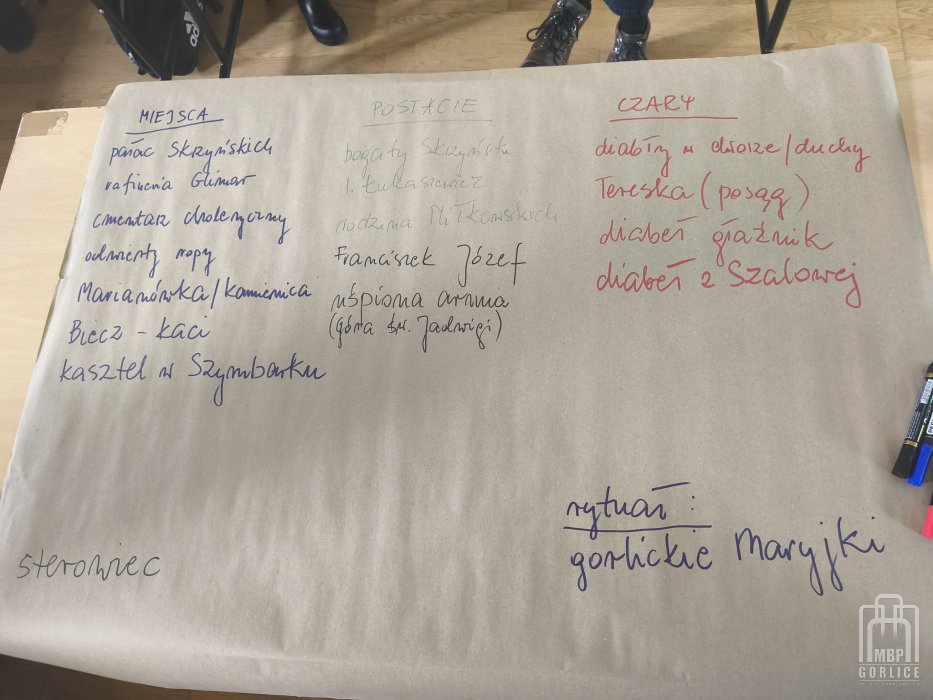 MIEJSCA
pałac Skrzyńskich
rafineria Glimar
cmentarz choleryczny
odwierty ropy
Marianówka/kamienica
Biecz - kaci
kasztel w Szymbarku
POSTACIE
bogaty Skrzyński
I. Łukasiewicz
rodzina Miłkowskich
Franciszek Józef
uśpiona armia
(góra św. Jadwigi)
CZARY
diabły w dworze/duchy
Tereska (posąg)
diabeł graźnik
diabeł z Szalowej
sterowiec
rytuał:
gorlickie Maryjki
adidas
MBP
GORLICE